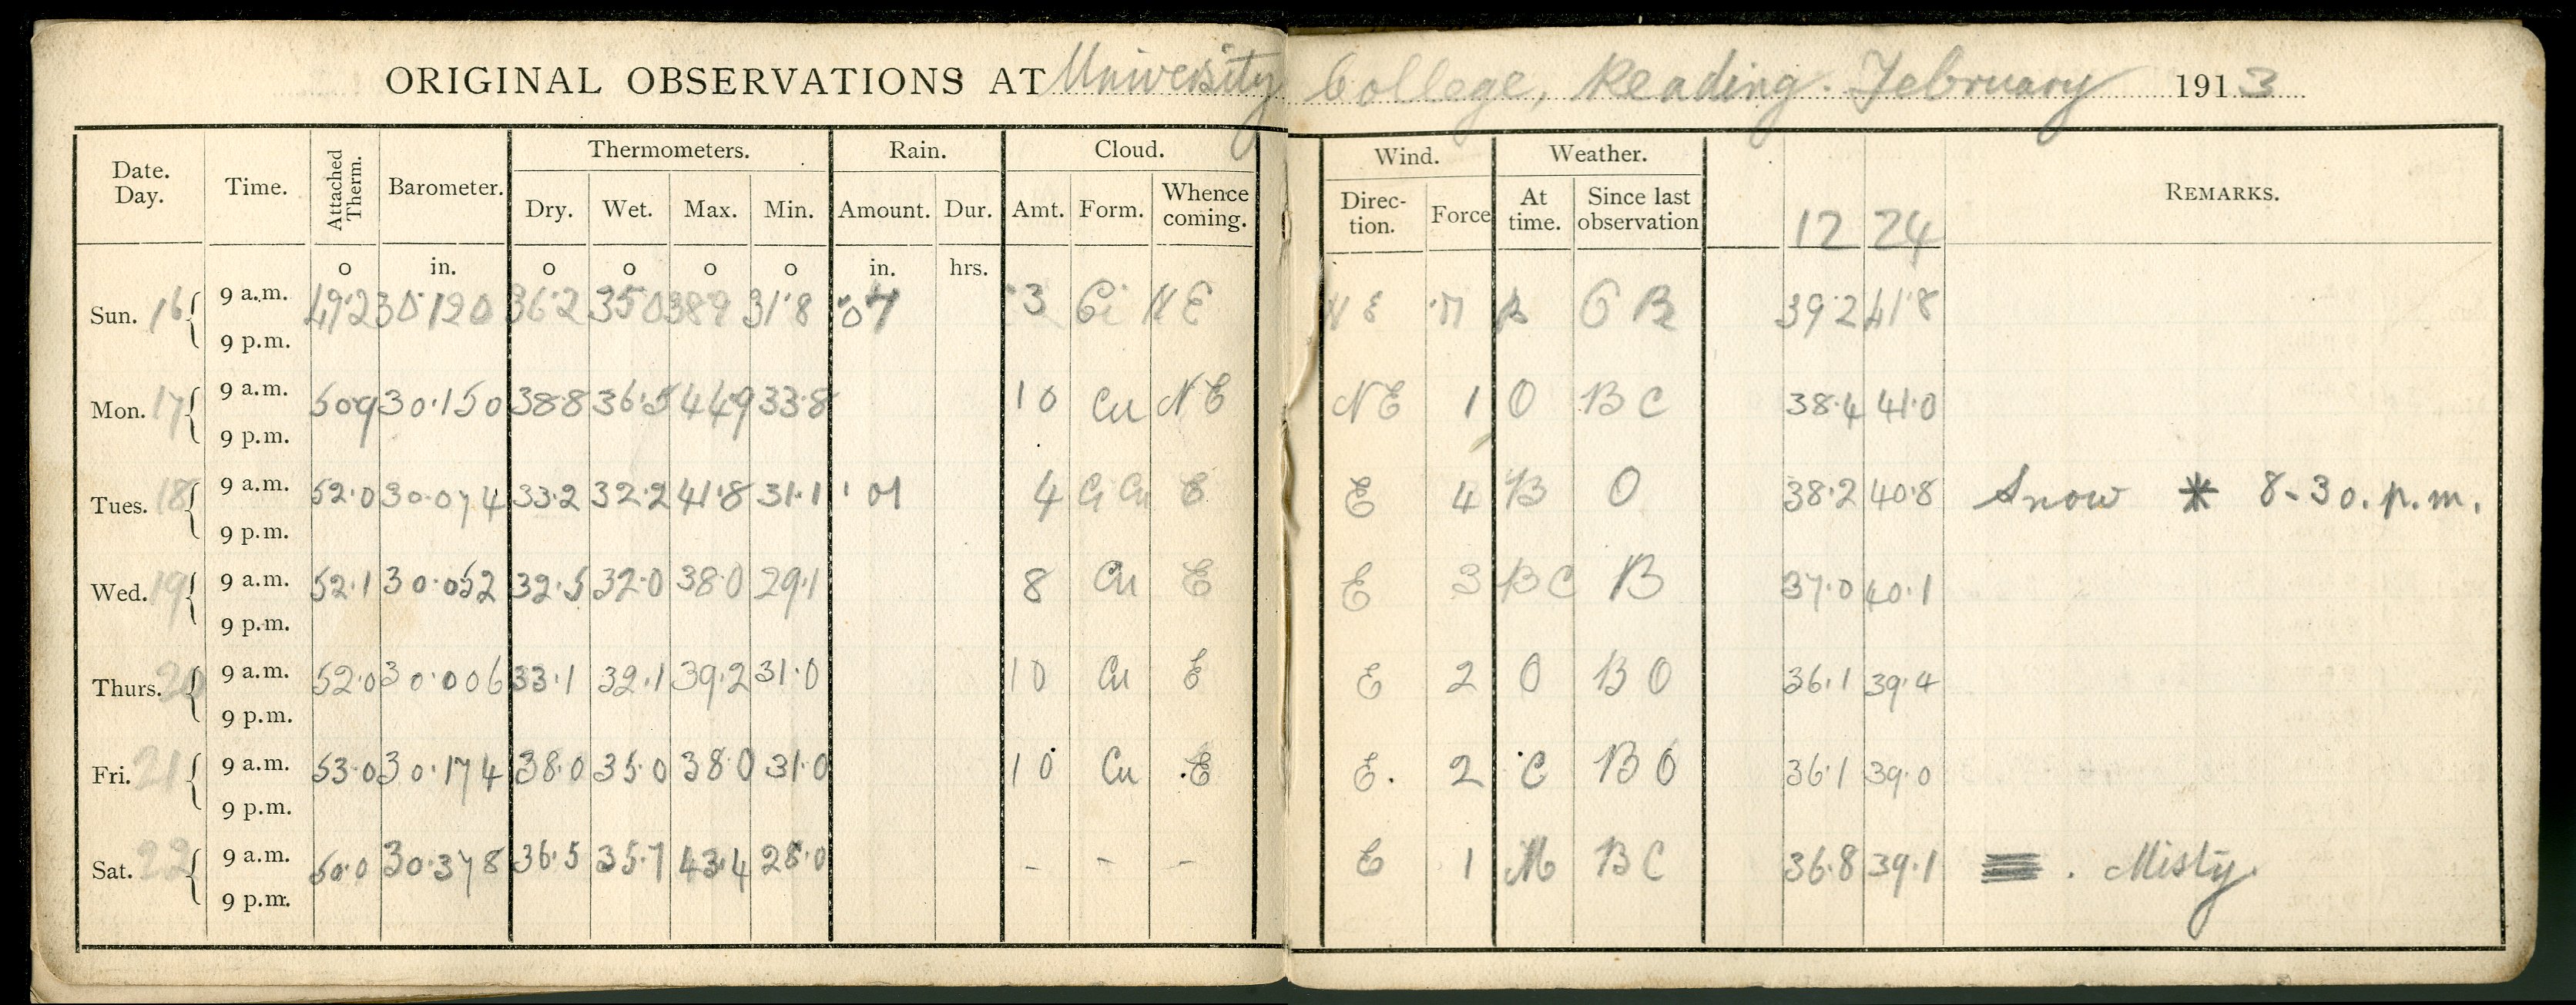 ORIGINAL OBSERVATIONS AT University College, Reading. February 1913
Thermometers. Rain. Cloud. Wind. Weather.
Date. Day. Time. Attached Therm. Barometer. Dry. Wet. Max. Min. Amount. Dur. Amt. Form. Whence coming. Direc- tion. Force At time. Since last observation 12 24 REMARKS.
o in. o o o o in. hrs.
Sun. 16 9 a.m. 49.2 30.120 36.2 35.0 38.9 31.8 .07 3 Ci NE NE B 39.2 41.8
9 p.m.
Mon. 17 9 a.m. 50.9 30.150 38.8 36.5 44.9 33.8 10 Cu NE NE 1 O BC 38.4 41.0
9 p.m.
Tues. 18 9 a.m. 52.0 30.074 33.2 32.2 41.8 31.1 .01 4 Ci Cu E E 4 B O 38.2 40.8 Snow * 8-30. p.m.
9 p.m.
Wed. 19 9 a.m. 52.1 30.052 32.5 32.0 38.0 29.1 8 Cu E E 3 BC B 37.0 40.1
9 p.m.
Thurs. 20 9 a.m. 52.0 30.006 33.1 32.1 39.2 31.0 10 Cu E E 2 O BO 36.1 39.4
9 p.m.
Fri. 21 9 a.m. 53.0 30.174 38.0 35.0 38.0 31.0 10 Cu E E. 2 C BO 36.1 39.0
9 p.m.
Sat. 22 9 a.m. 50.0 30.378 36.5 35.7 43.4 28.0 - - - E 1 M BC 36.8 39.1 . Misty.
9 p.m.